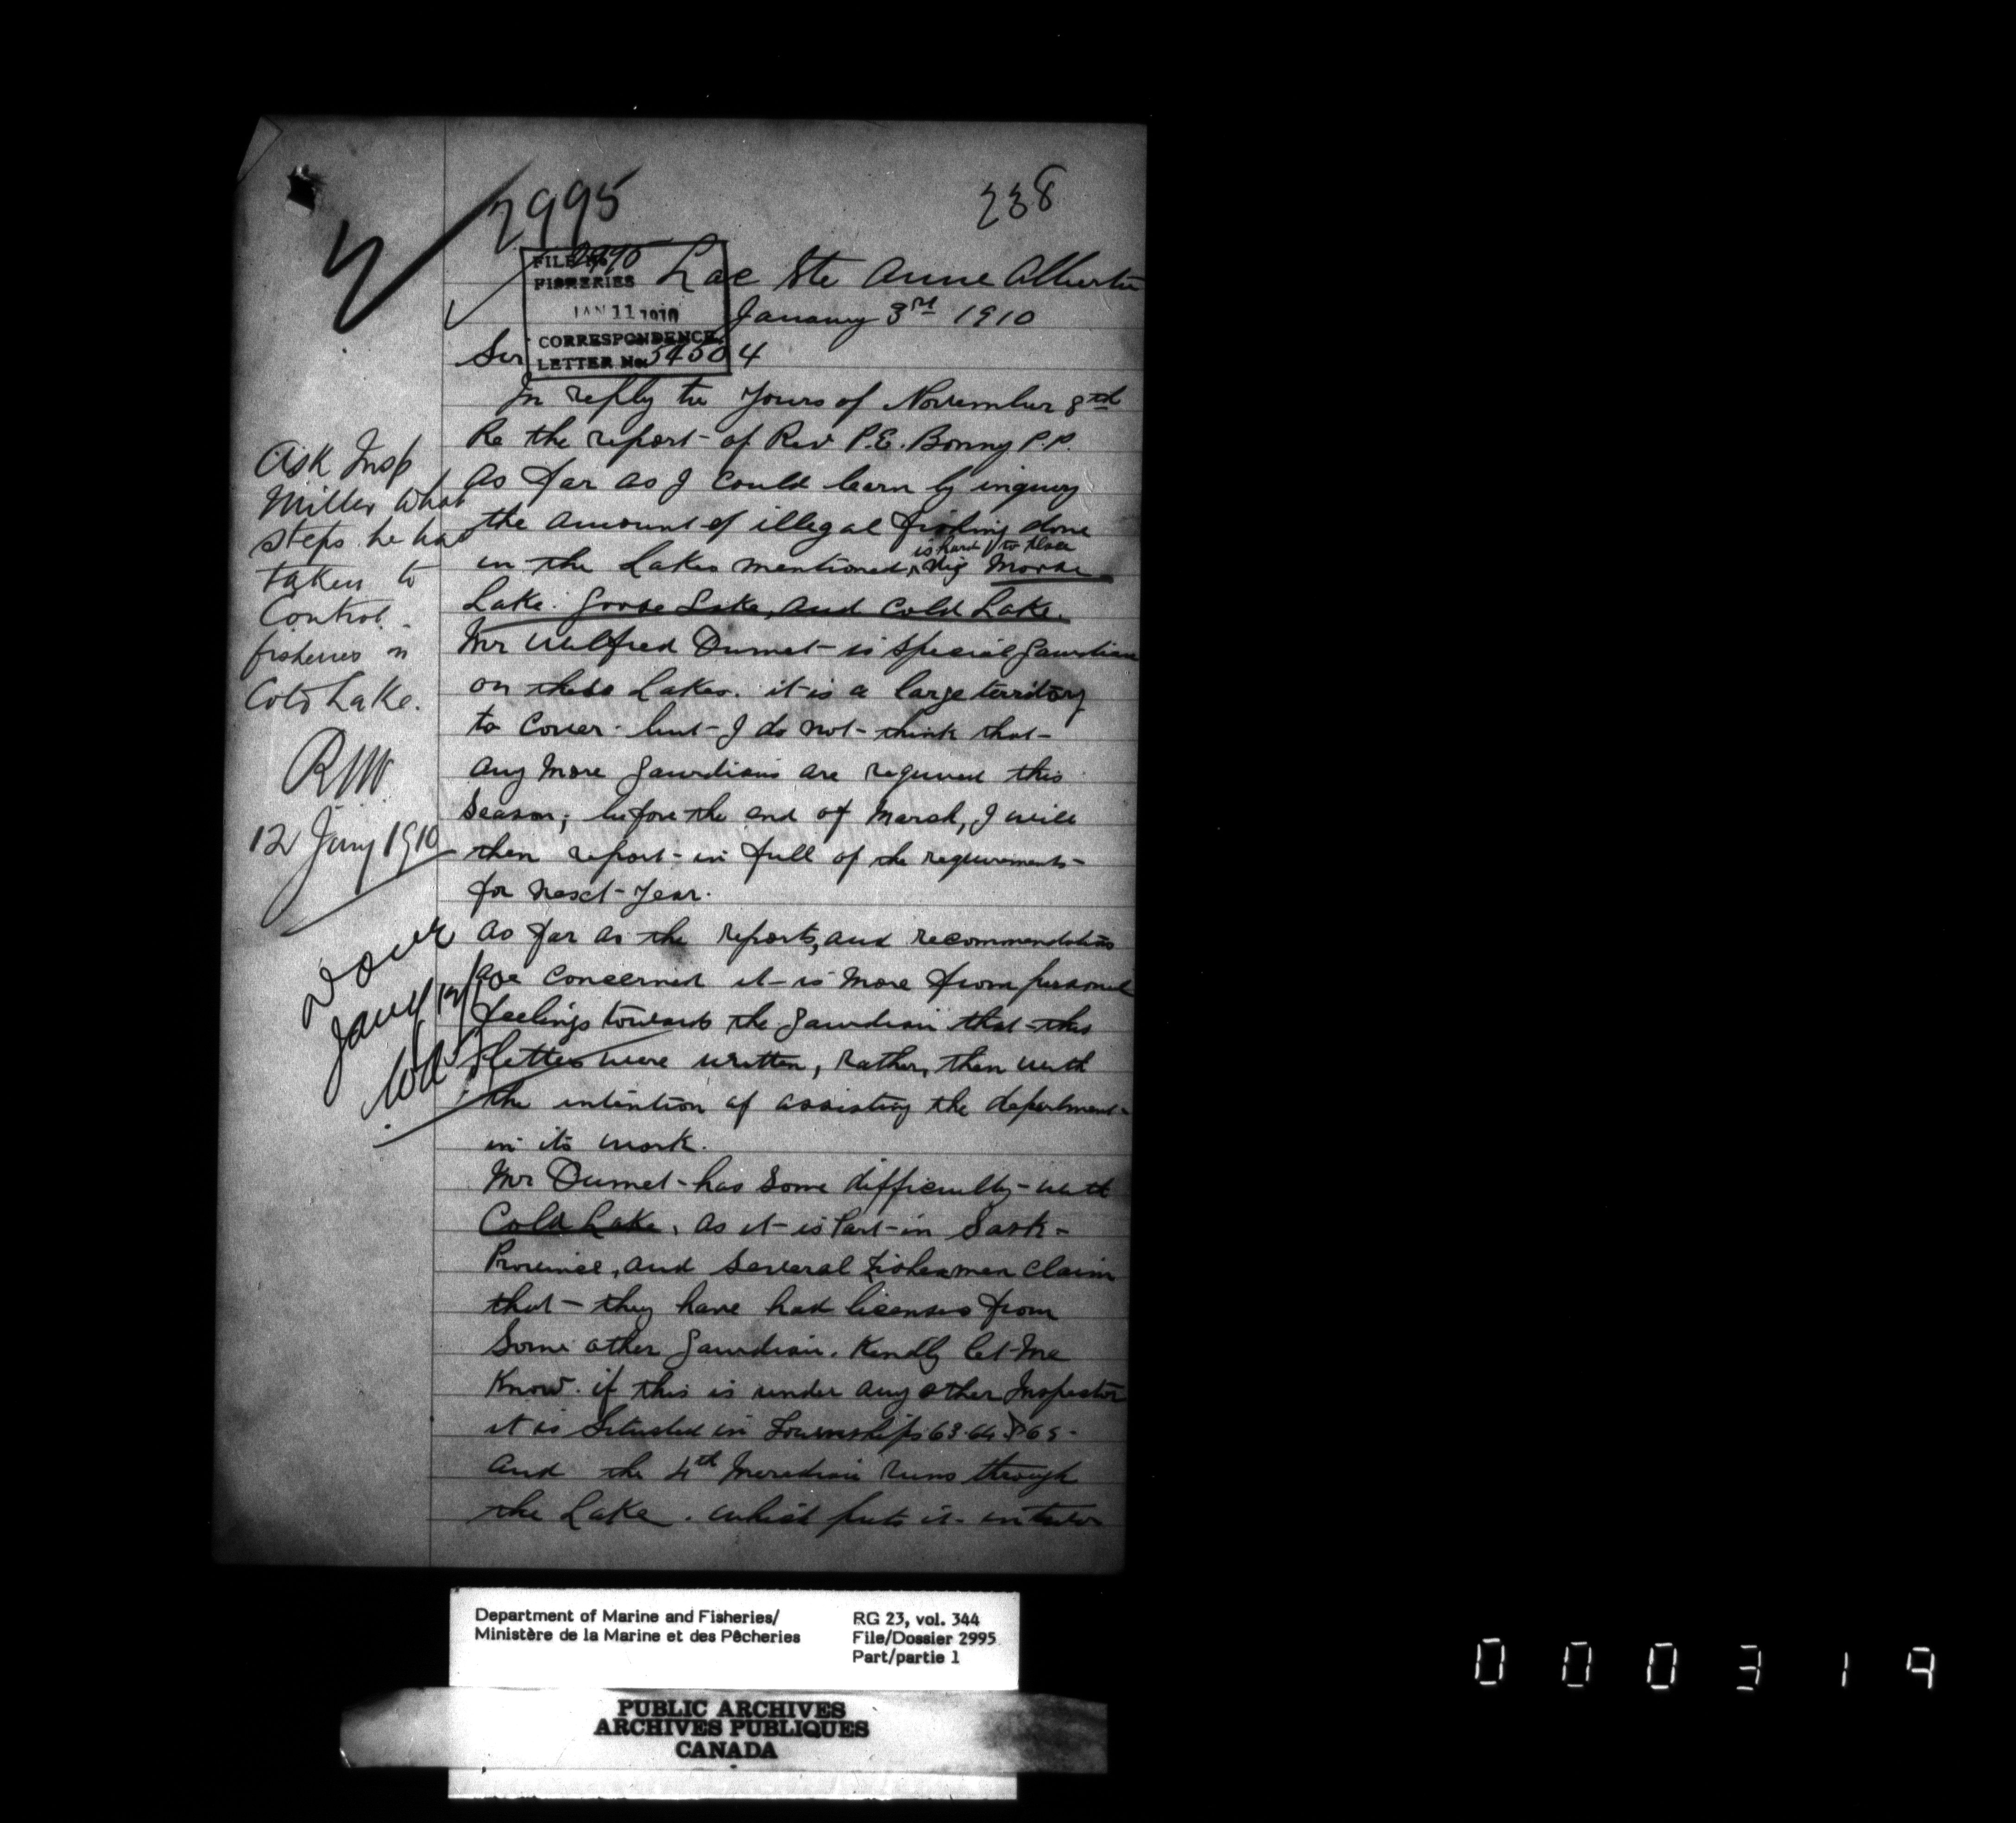 2995
238
FILE No 2990
FISHERIES
JAN 11 1910
CORRESPONDENCE
LETTER No. 54504
Lac Ste Anne Alberta
January 3rd 1910
Sir
In reply to yours of November 8th
Re the report of Rev P.E. Bonny P.P.
as far as I could learn by inquiry
the amount of illegal fishing done
in the Lakes mentioned, is hard to place Viz Moose
Lake. Goose Lake, and Cold Lake.
Mr Wilfred Dumet is special Gaurdian
on these Lakes. it is a large territory
to cover. but I do not think that
any more Gaurdians are required this
season; before the end of March, I will
then report in full of the requirements
for next year.
as far as the reports, and recommendations
are concerned it is more from personal
feelings towards the Gaurdian that this
letters were written, rather, then with
the intention of assisting the department
in its work.
Mr Dumet has some difficulty with
Cold Lake, as it is part in Sask
Province, and several Fishermen claim
that they have had licenses from
some other Gaurdian. Kindly let me
know. if this is under any other Inspector
it is situated in Townships 63.64 & 65.
and the 4th Meredian runs through
the Lake. which puts it in two
Ask Insp
Miller what
steps he has
taken to
Control
fisheries in
Cold Lake.
12 Jany 1910
Done
Jany 12/10
Department of Marine and Fisheries/
Ministère de la Marine et des Pêcheries
RG 23, vol. 344
File/Dossier 2995
Part/partie 1
PUBLIC ARCHIVES
ARCHIVES PUBLIQUES
CANADA
000319